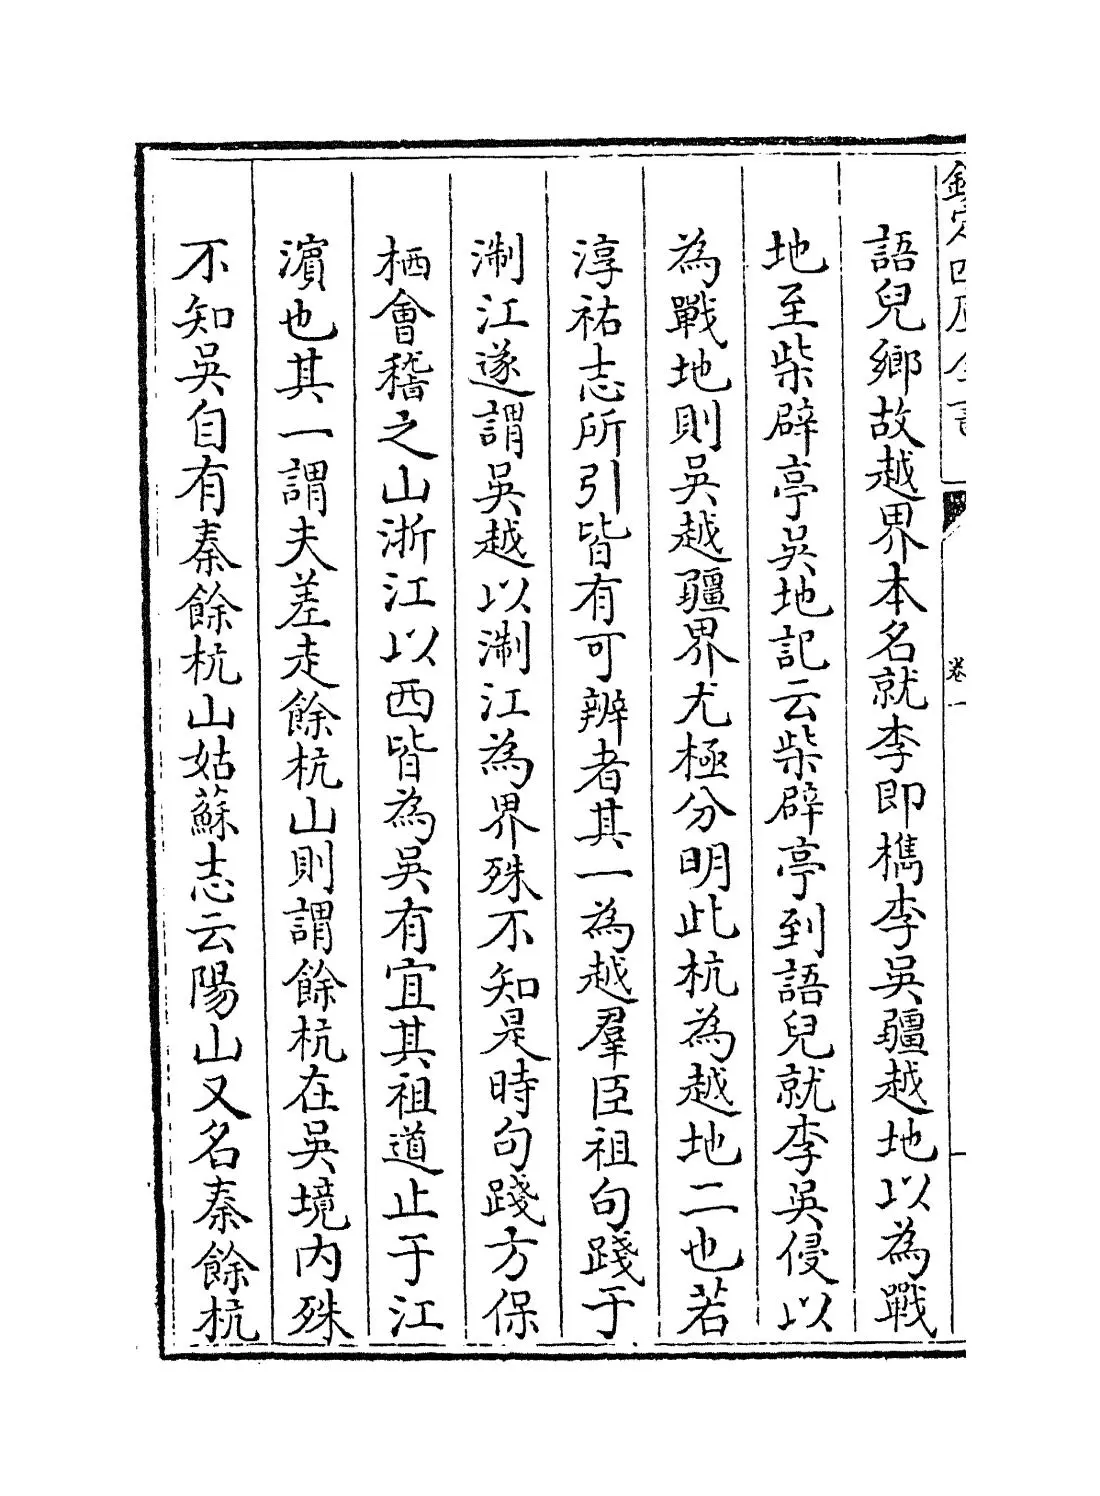 語兒鄉故越界本名就李即檇李吳疆越地以為戰
地至柴辟亭吳地記云柴辟亭到語兒就李吳侵以
為戰地則吳越疆界尤極分明此杭為越地二也若
淳祐志所引皆有可辨者其一為越羣臣祖句踐于
淛江遂謂吳越以淛江為界殊不知是時句踐方保
栖會稽之山浙江以西皆為吳有宜其祖道止于江
濵也其一謂夫差走餘杭山則謂餘杭在吳境内殊
不知吳自有秦餘杭山姑蘇志云陽山又名秦餘杭
卷一